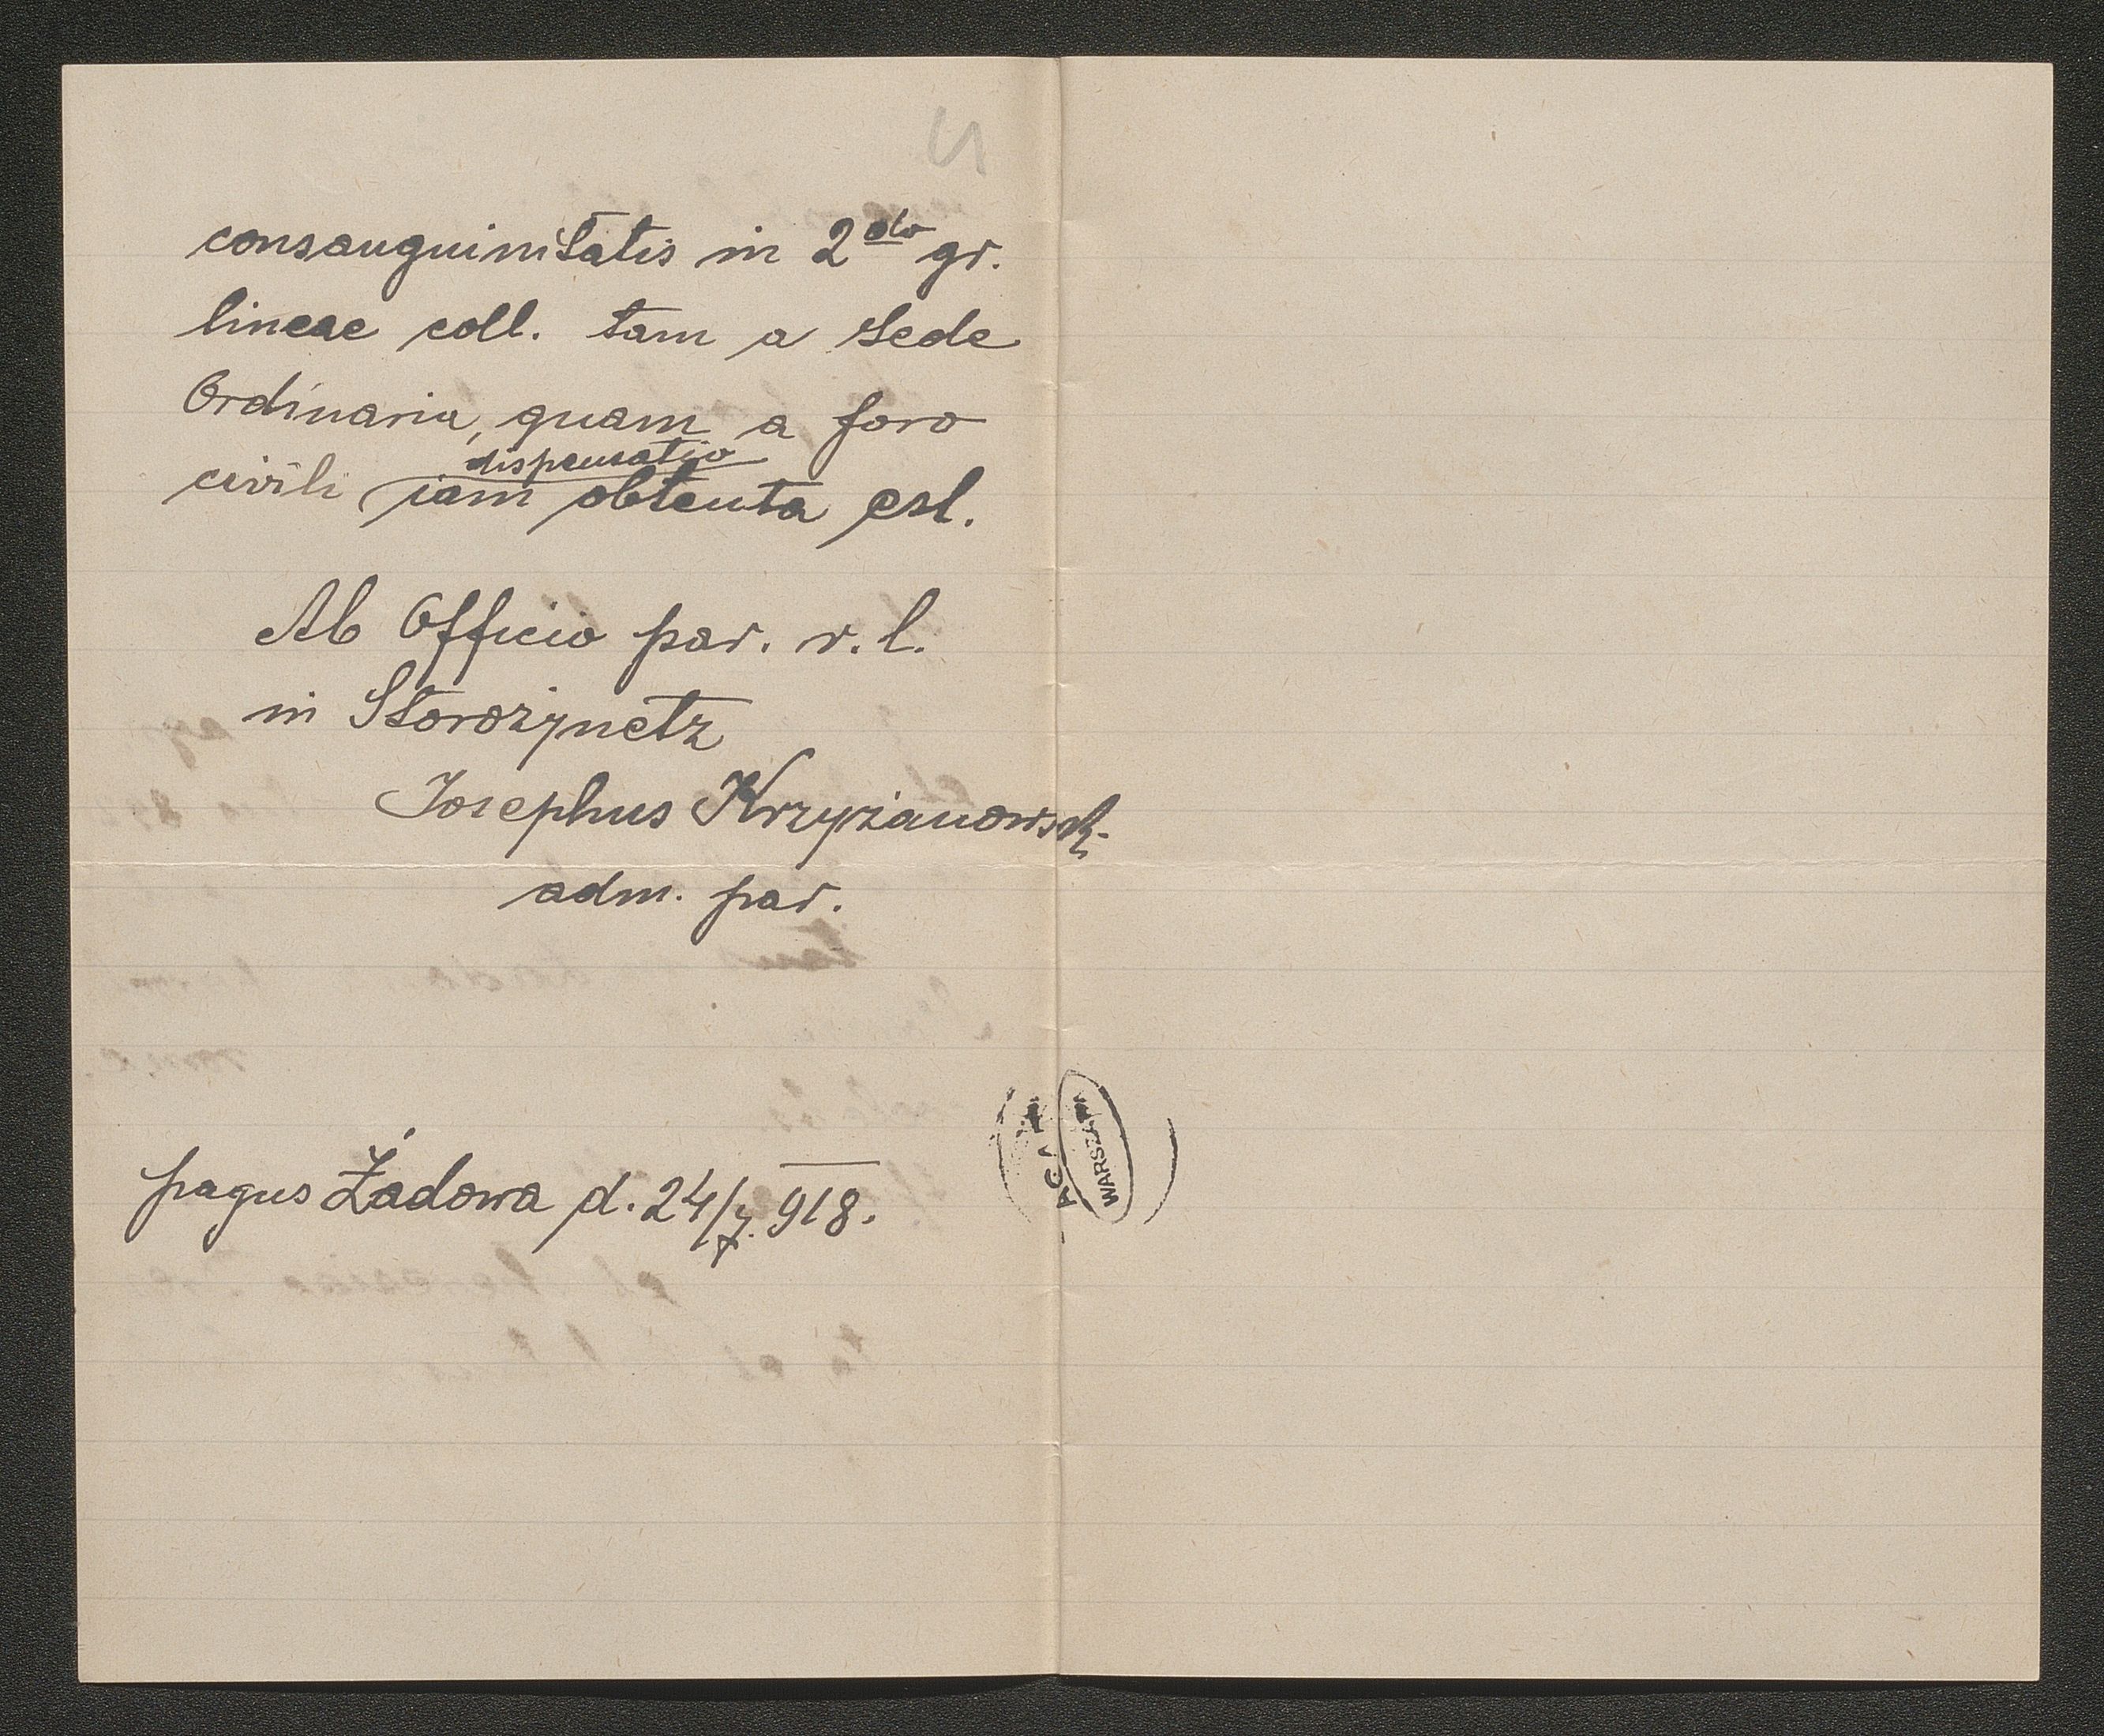 consanguinitatis in 2do gr.
lineae coll. tam a Sede
Ordinaria, quam a foro
dispensatio
civili iam obtenta est.
Ab Officio par. r. l.
in Storożynetz
Josephus Krzyżanowski
adm. par.
AGA
WARSZAWA
pagus Żadowa d. 24/7. 918.